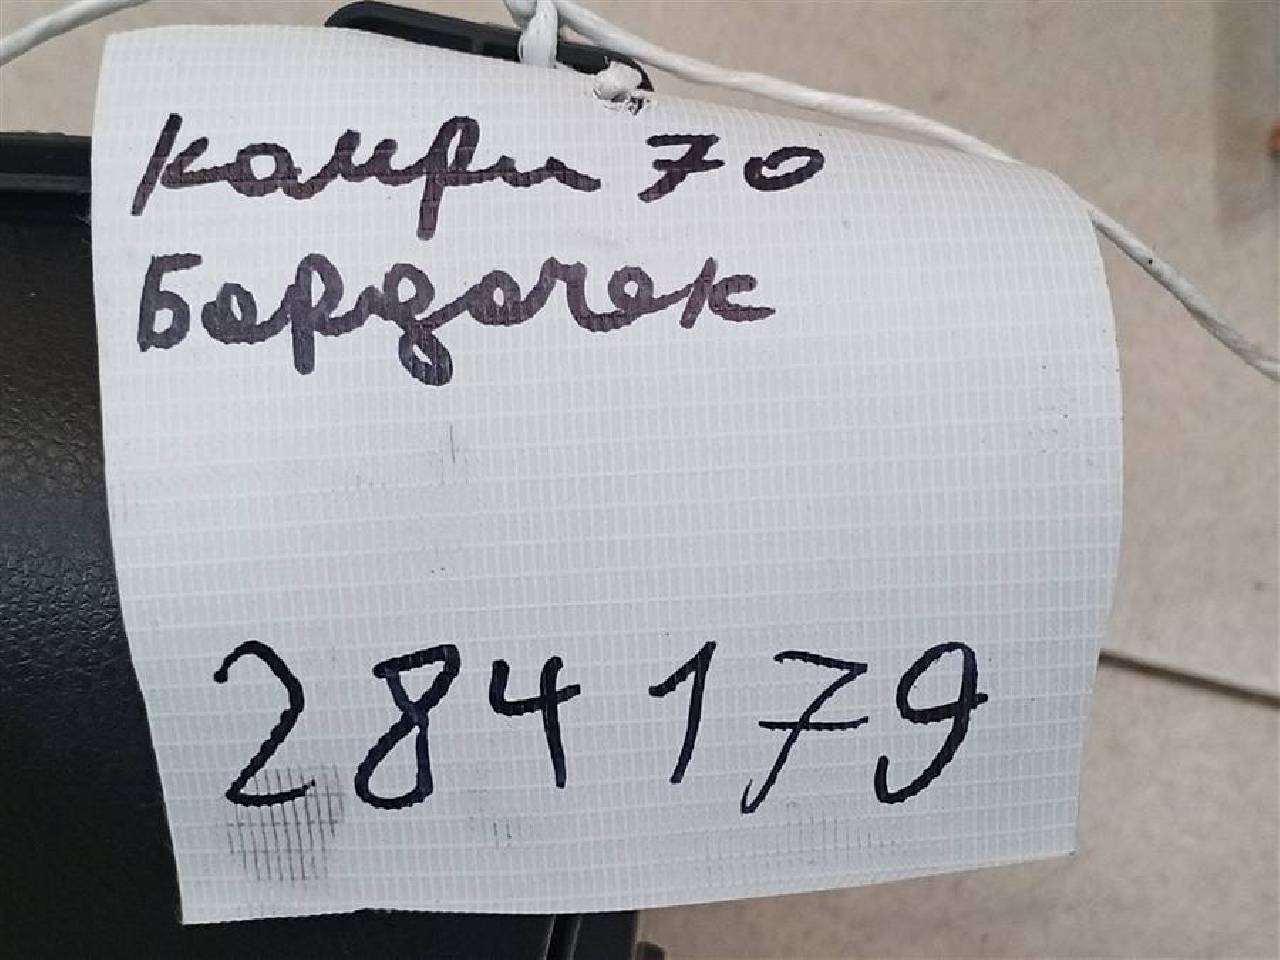 Камри 70
Бардачек
284179